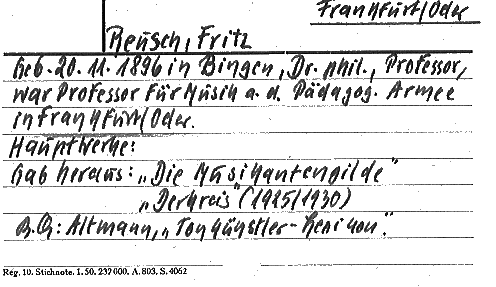 Frankfurt/Oder
Reusch, Fritz
Geb. 20. 11. 1896 in Bingen, Dr. phil., Professor,
war Professor für Musik a. d. Pädagog. Armee
in Frankfurt/Oder.
Hauptwerke:
Gab heraus: „Die Musikantengilde"
„Der Kreis" (1925/1930)
B.Q: Altmann, „Tonkünstler-Lexikon".
Reg. 10. Stichnote. 1. 50. 237000. A. 803. S. 4062